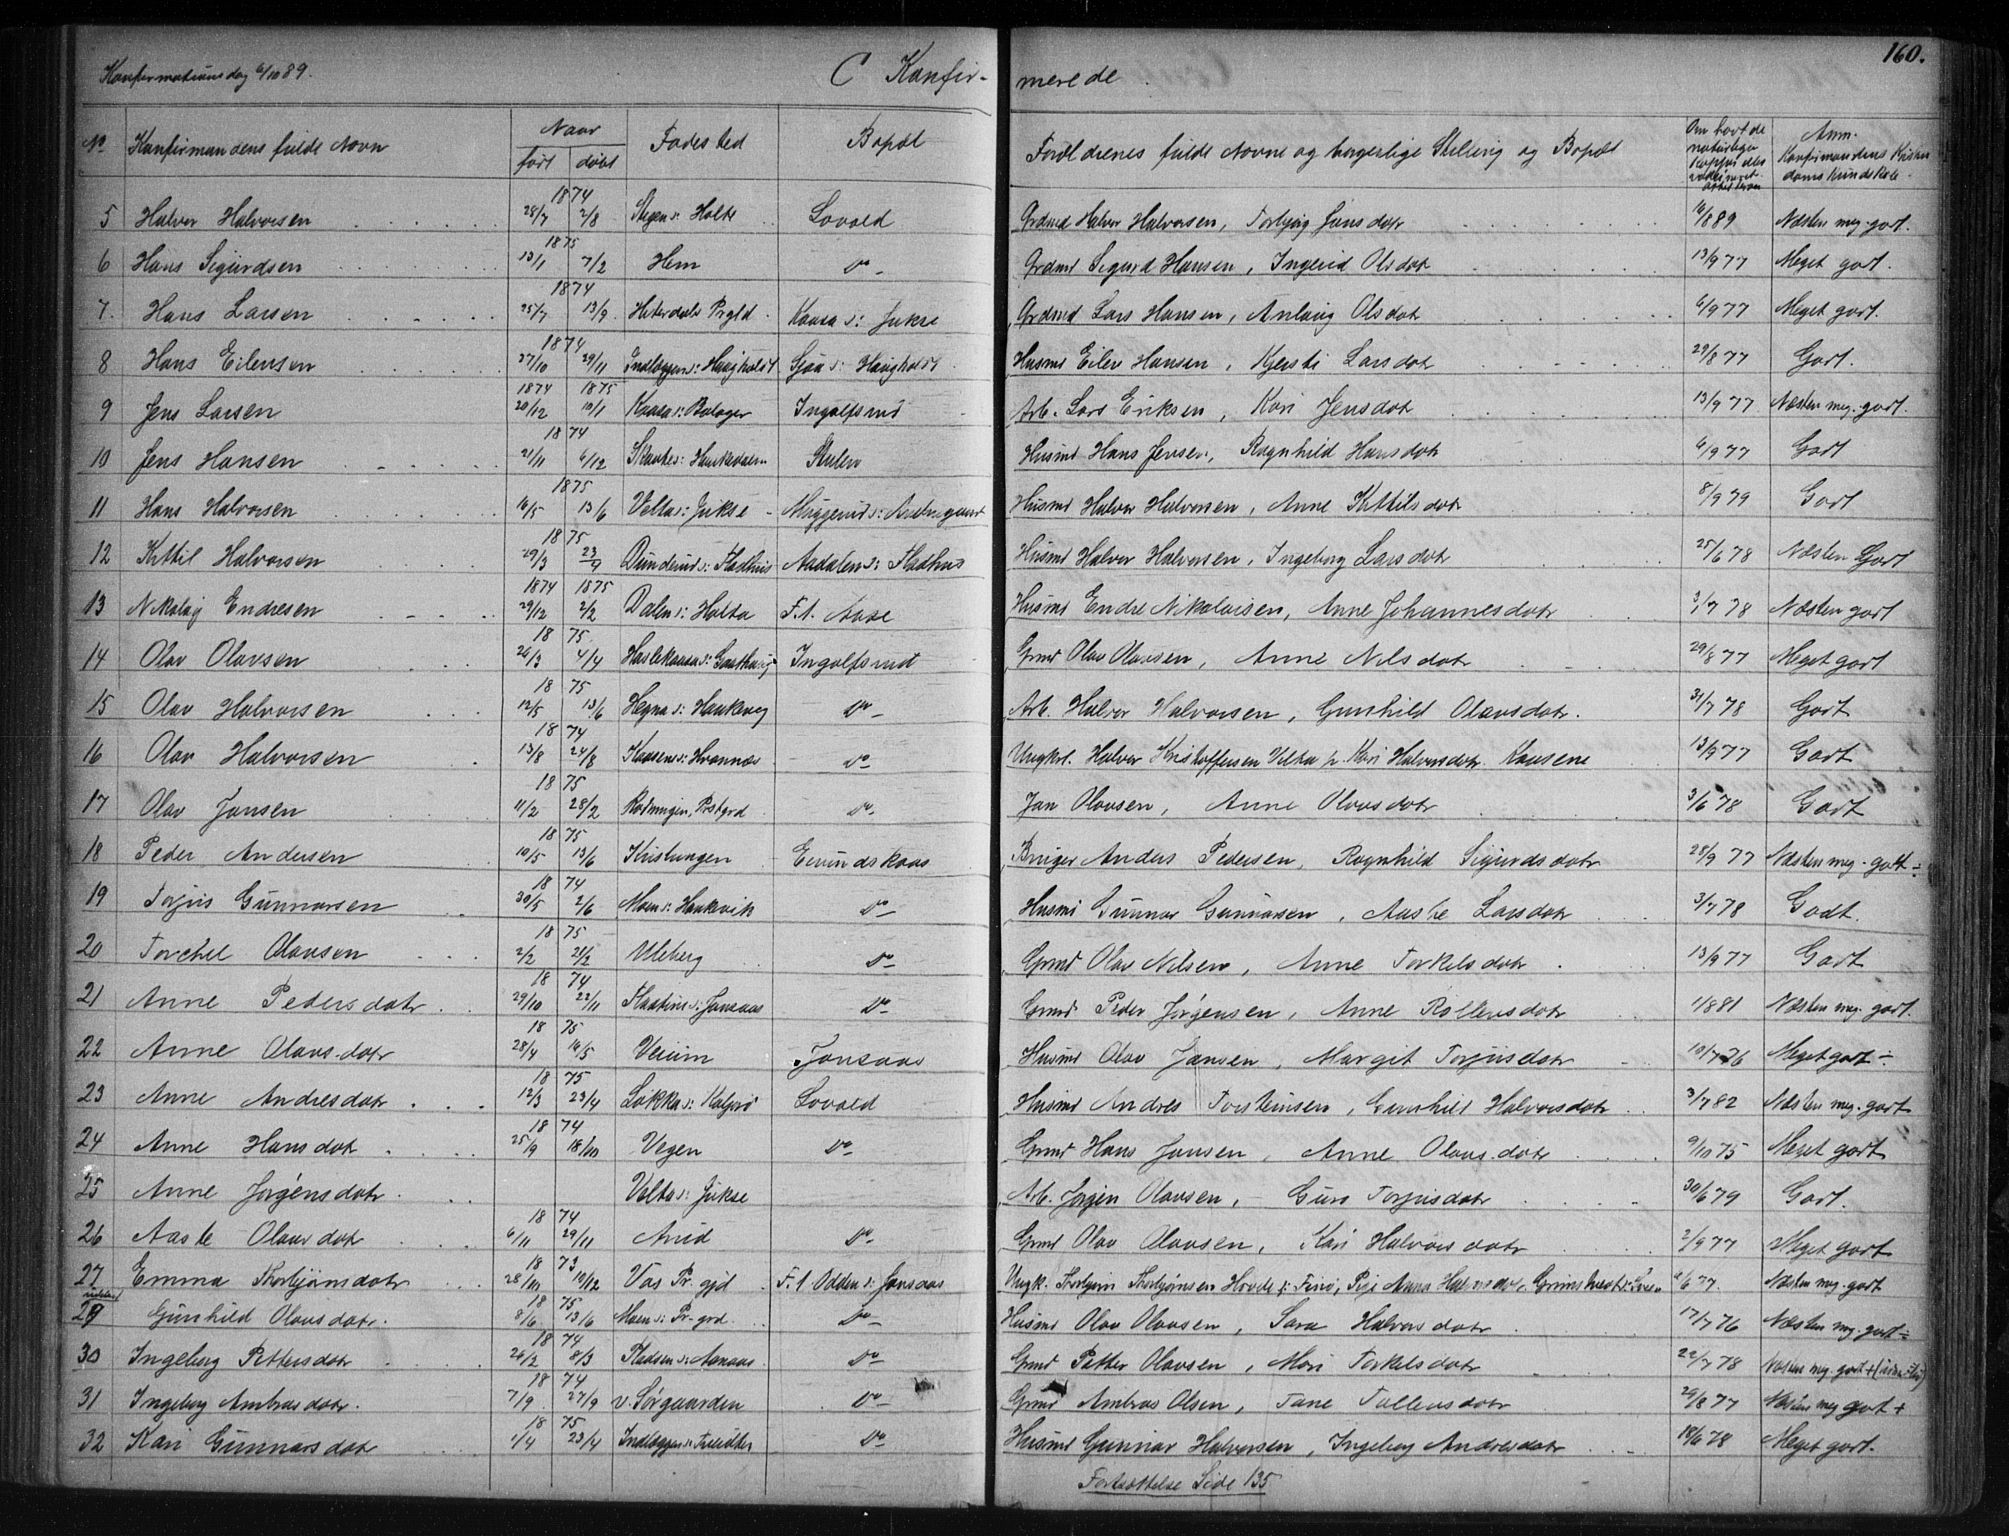 160.
Konfirmationsdag 6/10 89. C Konfir- merede.
No Konfirmandens fulde Navn Naar født døbt Fødested Bopæl Forældrenes fulde Navne og borgerlige Stilling og Bopæl Om havt de naturlige Kopper eller vaccineret Anm. Konfirmandens Kristendomskundskab.
5 Halvor Halvorsen 1874 28/7 2/8 Holte Lovald Grdmd Halvor Halvorsen, Torbjørg Jonsdotr 89 Næsten meg. godt.
6 Hans Sigurdsen 1875 13/1 7/2 Hem Do Grdmd Sigurd Hansen, Ingerid Olsdotr 13/9 77 Meget godt.
7. Hans Larsen 1874 25/7 13/9 Hiterdals Prgld. Kaasa s: Jukse Grdmd Lars Hansen, Anlaug Olsdotr 6/9 77 Meget godt.
8 Hans Eilevsen 1874 27/10 29/11 Indlæggen s: Haugholdt Sjaa s: Haugholdt Husmd Eilev Hansen, Kjersti Larsdotr 29/8 77 Godt.
9 Jens Larsen 1874 1875 20/12 10/1 Kaasa s: Bolager Ingolfsrud Arb. Lars Eriksen, Kari Jensdotr 13/9 77 Næsten meg. godt.
10 Jens Hansen 1874 21/11 6/12 Stulen Husmd Hans Jensen, Ragnhild Hansdotr 6/9 77 Godt
11 Hans Halvorsen 1875 16/5 13/6 Velta s: Jukse Husmd Halvor Halvorsen, Anne Kittilsdotr 8/9 79 Godt
12 Kittil Halvorsen 1875 29/3 23/4 Dunderud s: Fladhus Aadalen s: Fladhus Husmd Halvor Halvorsen, Ingeborg Larsdotr 25/6 78 Næsten Godt
13 Nikolaj Endresen 1874 1875 29/12 2/2 Dalen s: Holta F.t. Aase Husmd Endre Nikolaisen, Anne Johannesdotr 3/7 78 Næsten godt
14 Olav Olavsen 1875 26/3 4/4 Haslekaasa s: Ingolfsrud Grmd Olav Olavsen, Anne Nilsdotr 29/8 77 Meget godt
15 Olav Halvorsen 1875 12/5 13/6 Hegna s: Haukeveg Do Arb. Halvor Halvorsen, Gunhild Olavsdotr. 31/7 78 Godt
16 Olav Halvorsen 1874 13/8 24/8 Kaasene s: Hvannes Do Ungkrl. Halvor Kristoffersen Velta p. Kari Halvorsdotr Kaasene 13/9 77 Godt
17 Olav Jonsen 1875 11/2 28/2 Rødningen, Prstgrd Do Jon Olavsen, Anne Olavsdotr 3/6 78 Godt
18 Peder Andersen 1875 10/5 13/6 Eivindskaas Bruger Anders Pedersen, Ragnhild Sigurdsdotr 28/9 77 Næsten meg. godt ÷
19 Torjus Gunnarsen 1874 30/5 2/6 Moen s: Haukvik Do Husmd Gunnar Gunnarsen, Aaste Larsdotr 3/7 78 Godt.
20 Torchel Olavsen 1875 2/2 21/2 Uleberg Do Grmd Olav Nilsen, Anne Torkelsdotr 13/9 77 Godt
21 Anne Pedersdotr 1874 29/10 22/11 Flaatin s: Jonsaas Do Grmd Peder Jørgensen, Anne Rollevsdotr 1/8 81 Næsten meg. godt.
22 Anne Olavsdotr 1875 28/4 16/5 Veium Jonsaas Husmd Olav Jansen, Margit Torjusdotr 10/7 76 Meget godt ÷
23 Anne Andresdotr 1875 12/3 23/4 Løkka s: Lovald Husmd Andres Torsteinsen, Gunhild Halvorsdotr 3/7 82 Næsten meg. godt
24 Anne Hansdotr 1874 25/9 18/10 Vegen Do Grmd Hans Jonsen, Anne Olavsdotr 9/10 75 Meget godt
25 Anne Jørgensdotr. Velta s: Jukse Arb. Jørgen Olavsen, Guro Torjusdotr 30/6 79 Godt.
26 Aaste Olavsdotr 1874 6/11 29/11 Do Grmd Olav Olavsen, Kari Halvorsdotr 2/9 77 Meget godt
27 Emma Thorbjørnsdotr 1873 28/10 10/12 Vas Pr. gjd F.t. Odden s: Jonsaas Ungk. Thorbjørn Thorbjørnsen Hovde Pige Anna 77. Næsten meg. godt
29 Gunhild Olavsdotr. 1875 8/6 13/6 Moen s: Pr.-grd. Do Husmd Olav Olavsen, Sara Halvorsdotr 17/7 76 Næsten meg. godt ÷
30 Ingeborg Pettersdotr 1874 26/2 8/3 Pladsen s: Aanaas Do Grmd Petter Olavsen, Mari Torkelsdotr 22/7 78 Næsten meg. godt +
31 Ingeborg Ambrosdotr. 1874 7/9 27/9 v. Sørgaarden Do Grmd Ambros Olsen, Tone Tollevsdotr 29/8 77 Næsten meg godt +
32 Kari Gunnarsdotr 1875 1/4 23/4 Do Husmd Gunnar Halvorsen, Ingeborg Andresdotr 18/6 78 Meget godt.
Fortsættelse Side 135